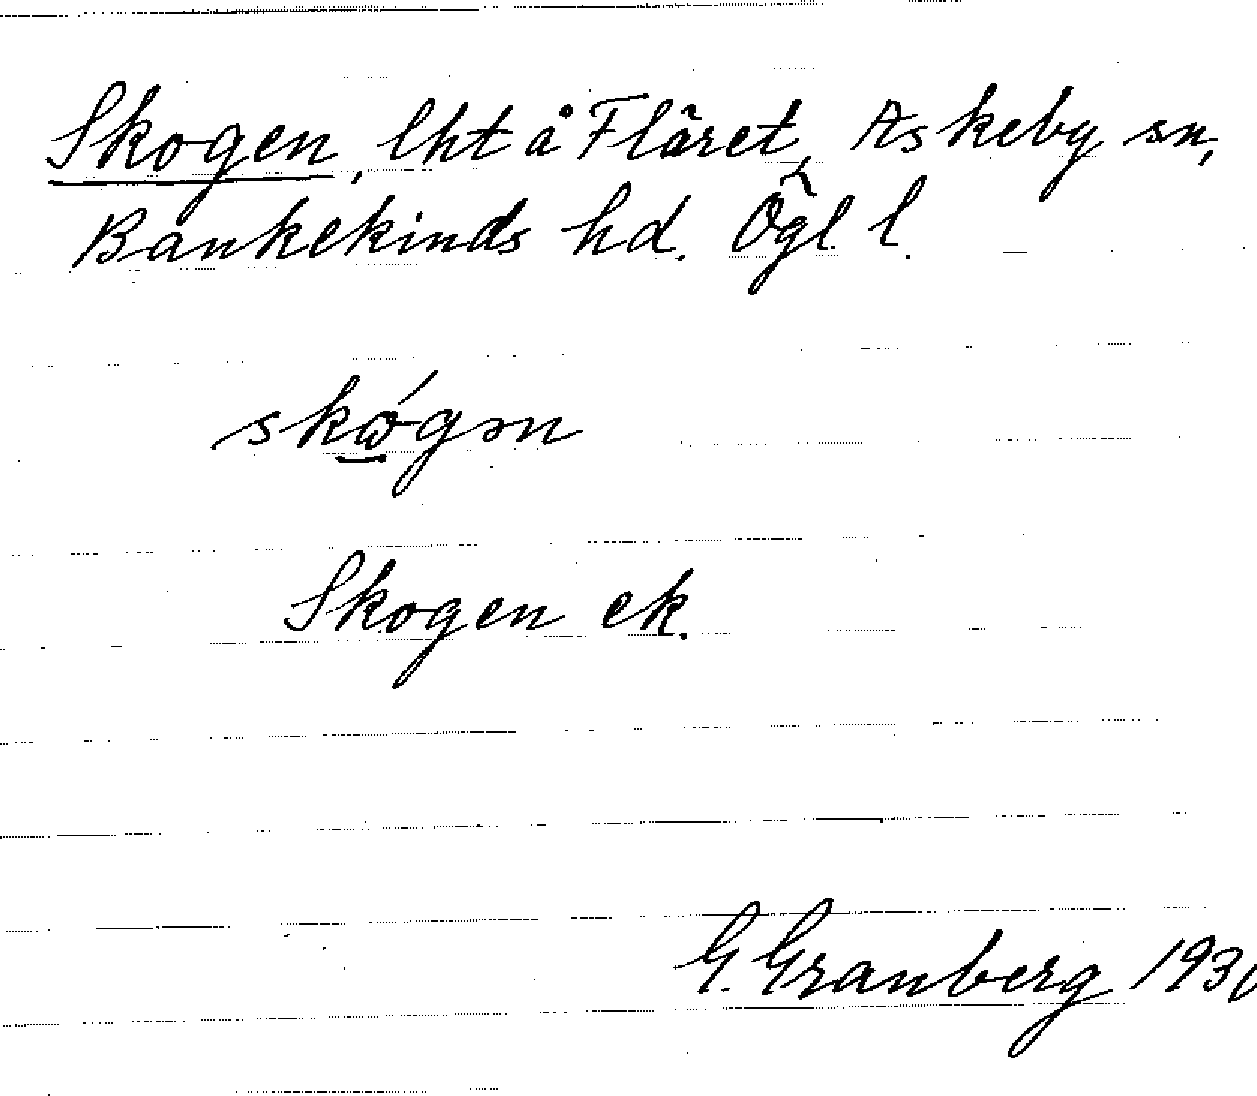 Skogen, lht å Fläret, Askeby sn,
Bankekinds hd. Ögl l.
skǿgən
Skogen ek.
G. Granberg 1930